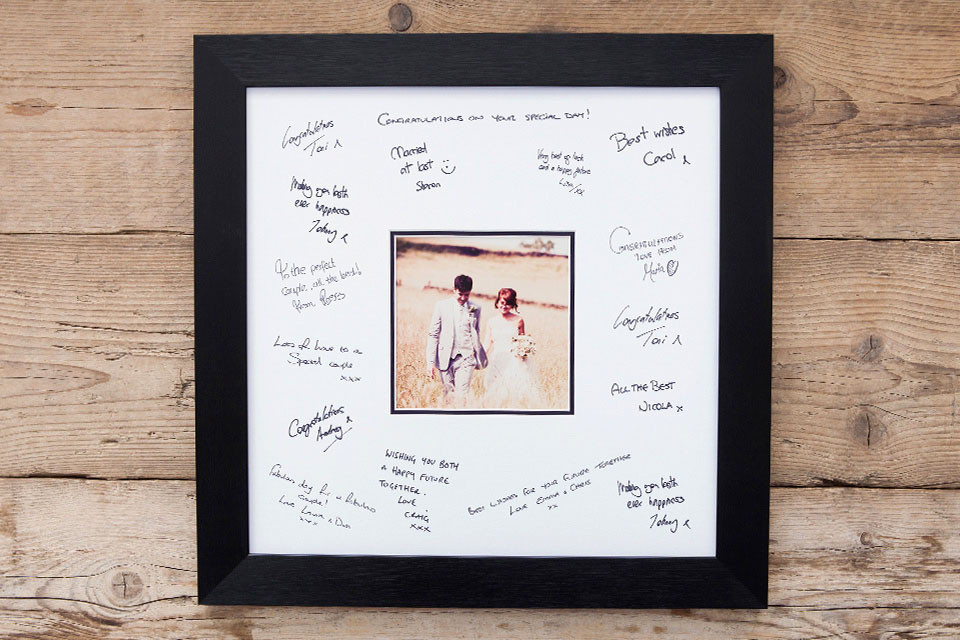 CONGRATULATIONS ON YOUR SPECIAL DAY!
Congratulations
Tai
Married
at last
Very best of luck
and a happy future
Lisa xx
Best wishes
Carol x
Wishing you both
ever happiness
Johny x
To the perfect
couple, all the best!
From
CONGRATULATIONS
LOVE FROM
Marta
Congratulations
Tai
Lots of love to a
Special couple
xxx
ALL THE BEST
NICOLA x
Congratulations
Audrey
Fabulous day for a fabulous
couple!
Love Laura & Dan
xxx
WISHING YOU BOTH
A HAPPY FUTURE
TOGETHER.
LOVE
CRAIG
xxx
BEST WISHES FOR YOUR FUTURE TOGETHER
LOVE EMMA & CHRIS
xx
ever happiness
Johny x